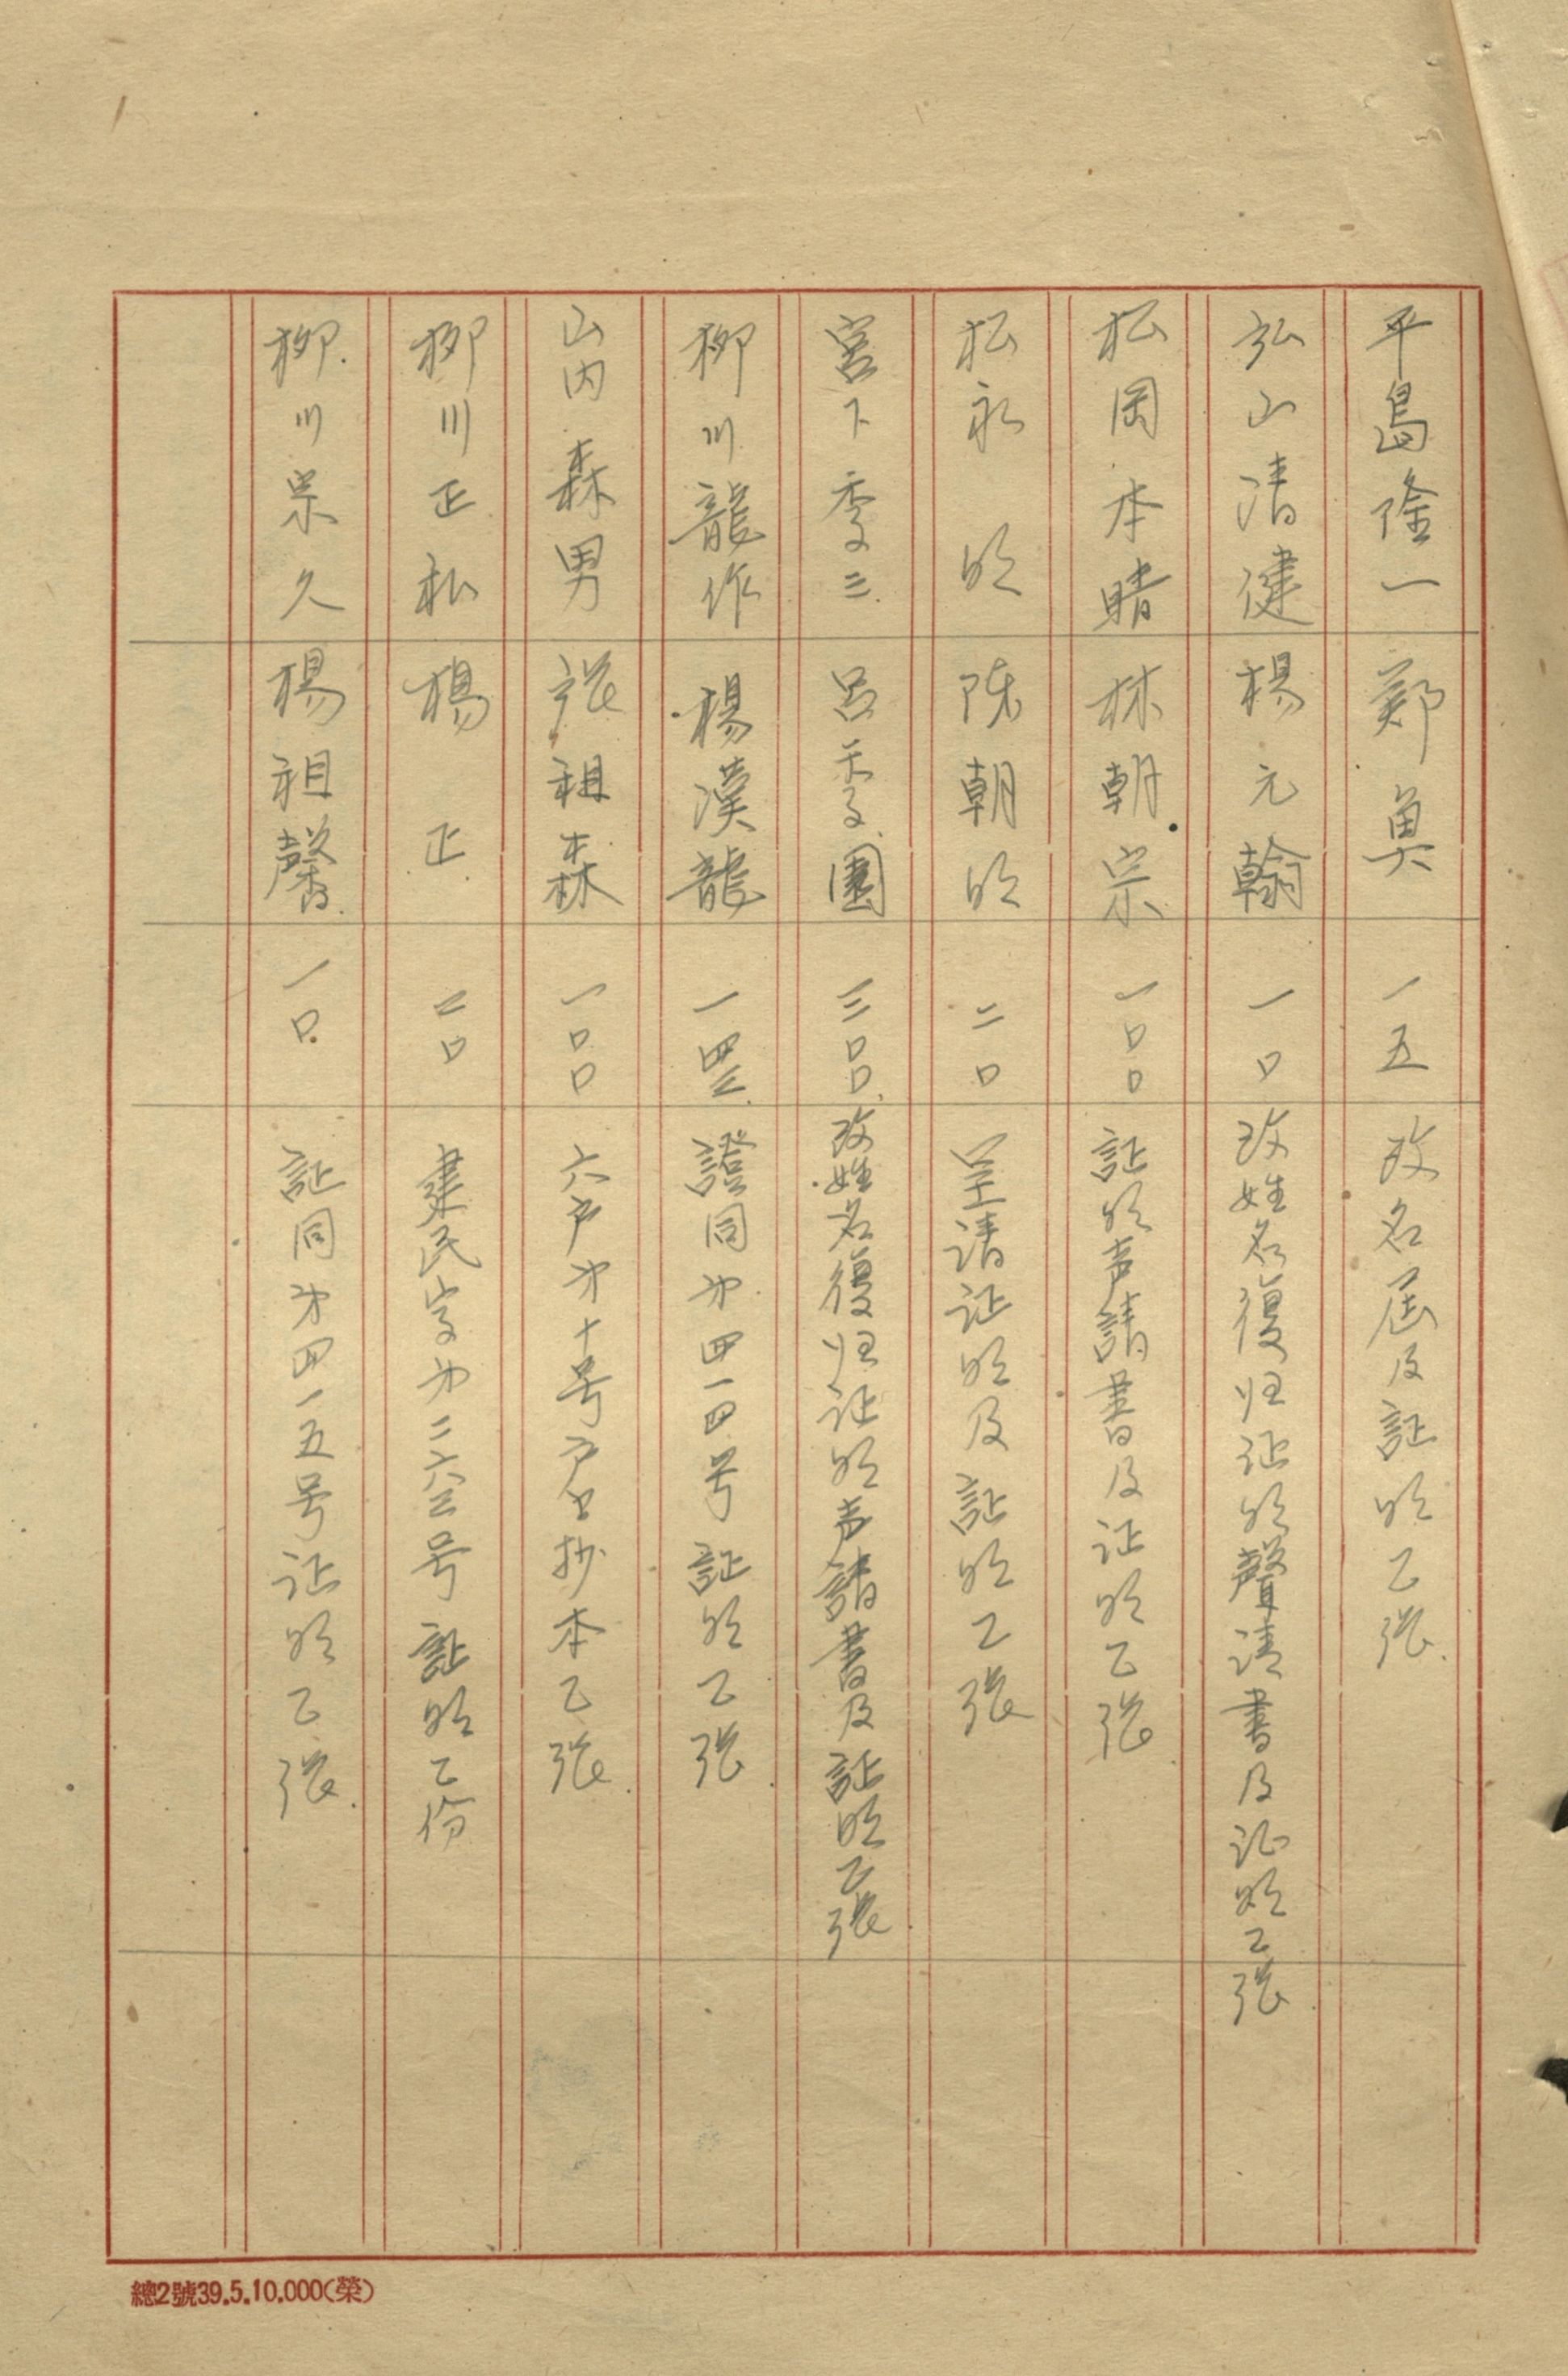 平島隆一 鄭奠 一五 改名届及証明乙張
弘山清健 楊元翰 一口 改姓名復归证明聲请書及证明乙張
松岡本晴 林朝宗 一口口 証明声請書及证明乙張
松永明 陈朝明 二口 呈请证明及証明乙張
宮下季三 呂季園 三口口 改姓名復归证明声請書及証明乙張
柳川龍作 楊漢龍 一四三 證同才四一四号証明乙張
山内森男 張祖森 一口口 六户才十号户口抄本乙張
柳川正松 楊正 二口 建民字才二六三号証明乙份
柳川宗久 楊祖馨 一口 証同才四一五号证明乙張
總2號39.5.10.000(榮)